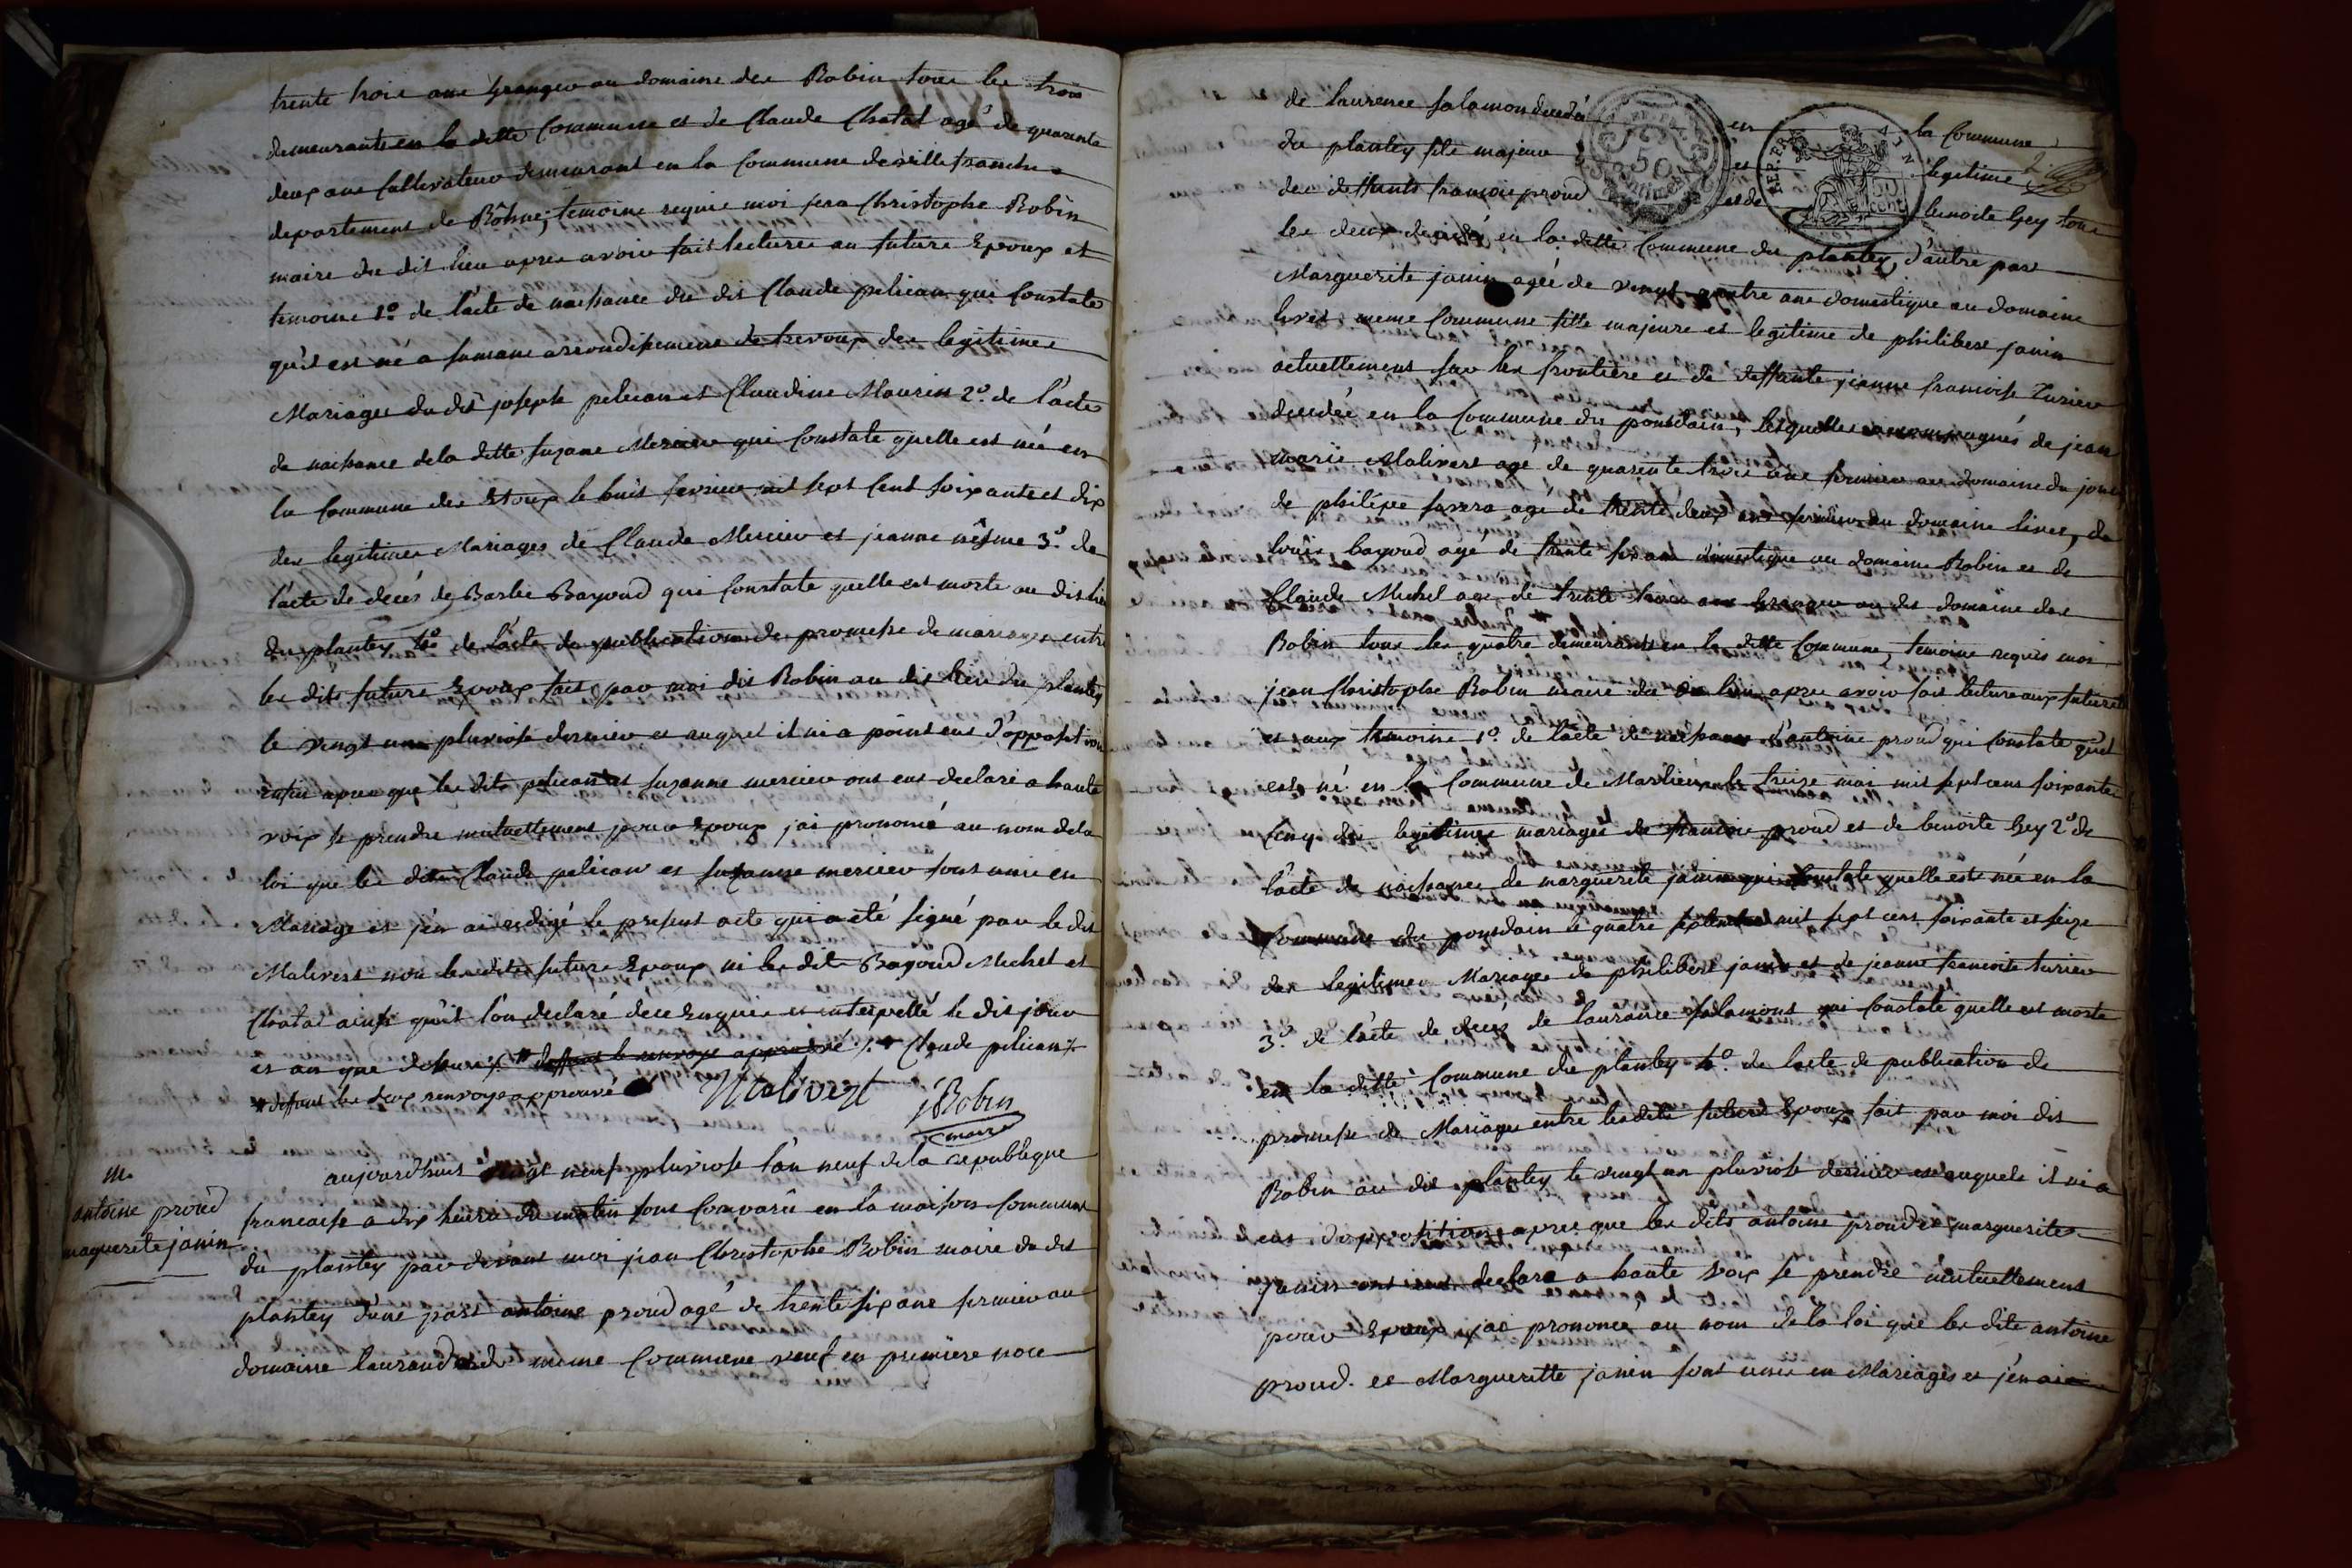 trente trois ans granger au domaine des Robin tous les trois
demeurants en la ditte Commune et de Claude Chatal agé de quarente
deux ans Cultivateur demeurant en la Commune de villefranche
departement de Rôhne, temoins requis moi jean Christophe Robin
maire du dit lieu apres avoir fait lecture au futurs Epoux et
temoins 1º de l'acte de naissance du dit Claude pelican qui Constate
qu'il est né a arrondissement de trevoux des legitimes
Mariages du dit joseph pelican et Claudine Maurin 2º de l'acte
de naissance de la ditte suzane Mercier qui Constate quelle est née en
la Commune des Etoux le huit fevrier mil sept Cent soixante et dix
des legitimes Mariages de Claude Mercier et jeanne 3º de
l'acte de decés de Barbe Bayoud qui Constate quelle est morte au dit lieu
du plantey 4º de l'acte de publication de promesse de mariages entre
les dits futurs Epoux fait par moi dit Robin au dit lieu du plantey
le vingt un pluviose dernier et auquel il ni a point eus d'opposition
enfin apres que les dits pelican et suzanne mercier ont eus declaré a haute
voix se prendre mutuellement pour Epoux jai prononcé au nom de la
loi que les dits Claude pelican et suzanne mercier sont unis en
Mariage et j'en ai redigé le present acte qui a été signé par le dit
Malivert non les dits futurs Epoux ni les dits Bayoud Michel et
Chatal ainsi qu'il l'on declaré de ce Enquis et interpellé le dit jour
et an que dessus le renvoye approuvé Claude pelican
les deux renvoye approuvé Malivert jRobin
maire
M.
antoine proud
maguerite janin
aujourdhuit vingt neuf pluviose l'an neuf de la republique
francaise a dix heures du matin sont Comparûs en la maison Commune
du plantey par devant moi jean Christophe Robin maire du dit
plantey d'une part antoine proud agé de trente six ans fermier au
domaine laurand meme Commune veuf en premiere noce
de laurence salamon decedé en la Commune
du plantey fils majeur et legitime
des deffunts francois proud et de benoite Gey tous
les deux decedé en la ditte Commune du plantey, d'autre part
Marguerite janin agée de vingt quatre ans domestique au domaine
livet meme Commune fille majeure et legitime de philibert janin
actuellement sur les frontière et de deffunte jeanne francoise Turier
decedée en la Commune du ponsdain, lesquelles accompagnés de jean
marie Malivert agé de quarente trois ans fermier au domaine du jonc
de philipe agé de trente deux ans fermier au domaine livet, de
louis bayoud agé de trente six ans domestique au domaine Robin et de
Claude Michel agé de trente trois ans granger au dit domaine des
Robin tous les quatre demeurants en la ditte Commune, temoins requis moi
jean Christophe Robin maire du dit lieu apres avoir fait lecture aux futures
et aux temoins 1º de l'acte de naissance d'antoine proud qui Constate qu'il
est né en la Commune de Marlieux le treize mai mil sept cens soixante
Cinq des legitimes mariages de francois proud et de benoite Gey 2º de
l'acte de naissance de marguerite janin qui Constate quelle est née en la
Commune du ponsdain le quatre septembre mil sept cens soixante et seize
des legitimes Mariages de philibert janin et de jeanne francoise turier
3º de l'acte de decés de laurance salamons qui Constate quelle est morte
en la ditte Commune du plantey 4º de l'acte de publication de
promesse de Mariages entre les dits futurs Epoux fait par moi dit
Robin au dit plantey le vingt un pluviose dernier et auquels il ni a
eus d'opposition, apres que les dits antoine proud et marguerite
janin ont eus declaré a haute voix se prendre mutuellement
pour Epoux jai prononcé au nom de la loi que les dits antoine
proud et Margueritte janin sont unis en Mariages et j'en ai